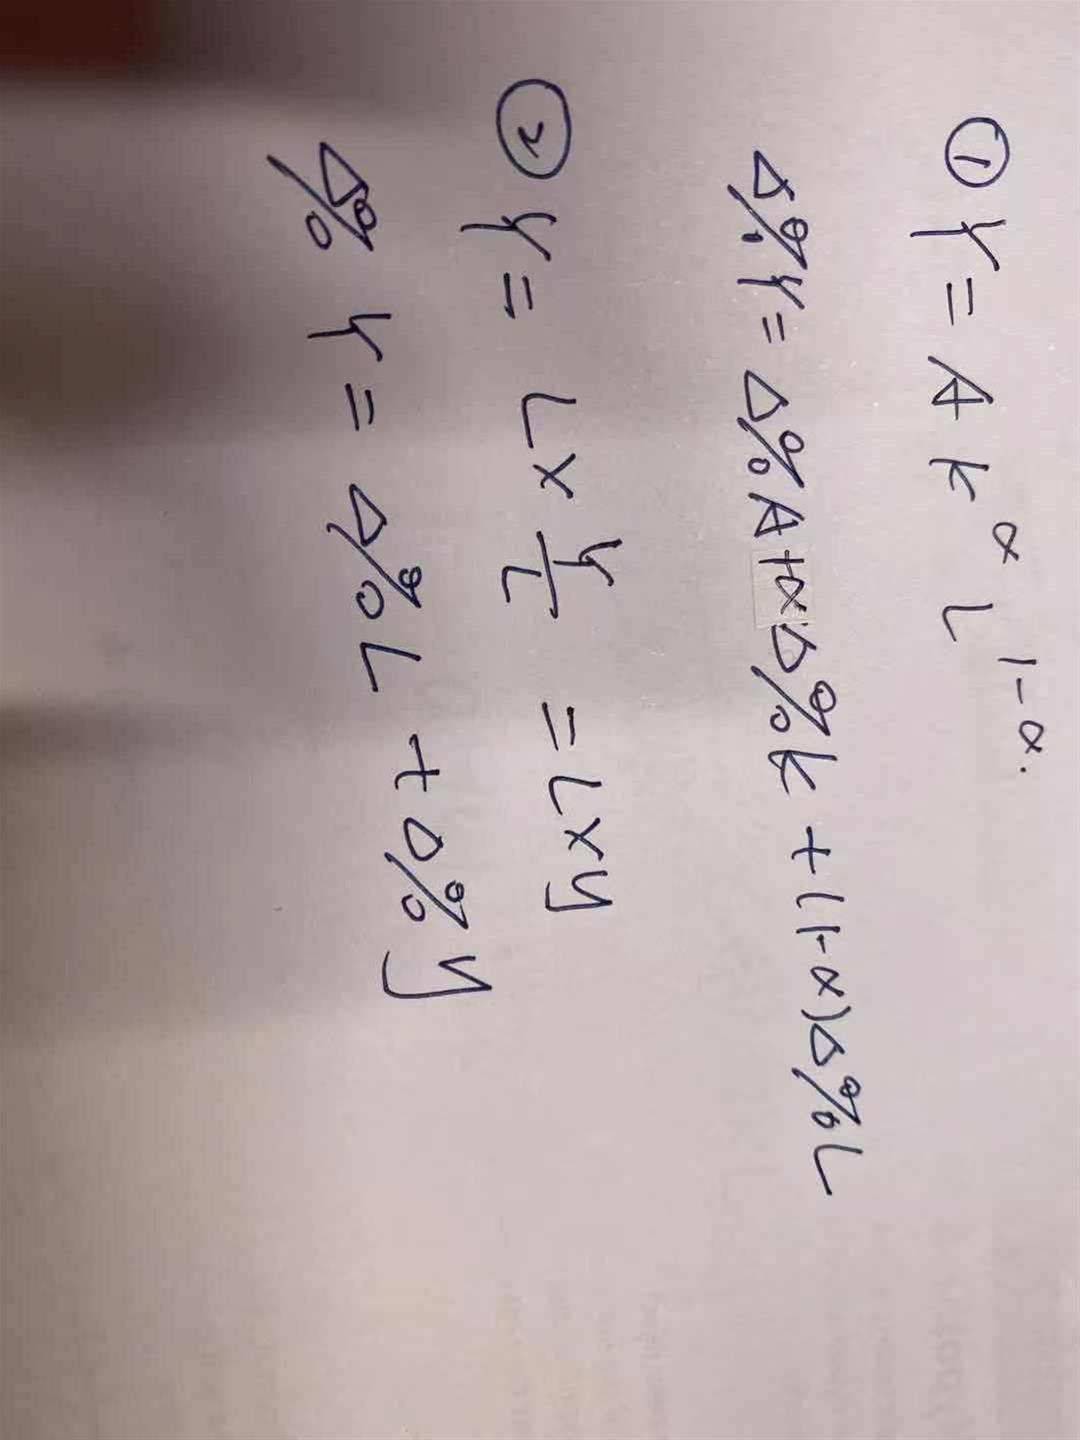 ① Y = A K^α L^1-α.
Δ%Y = Δ%A + αΔ%K + (1-α)Δ%L
② Y = L × Y/L = L × y
Δ% Y = Δ%L + Δ%y